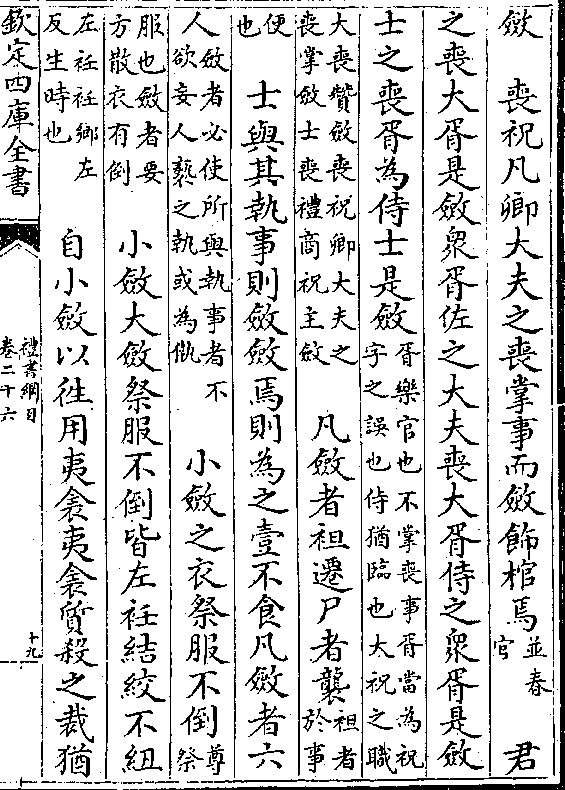 斂　喪祝凡卿大夫之喪掌事而斂飾棺焉並春官　君
之喪大胥是斂衆胥佐之大夫喪大胥侍之衆胥是斂
士之喪胥為侍士是斂胥樂官也不掌喪事胥當為祝字之誤也侍猶臨也大祝之職
大喪賛斂喪祝卿大夫之喪掌斂士喪禮商祝主斂　凡斂者袒遷尸者襲袒者於事
便也　士與其執事則斂斂焉則為之壹不食凡斂者六
人斂者必使所與執事者不欲妄人褻之執或為㑃　小斂之衣祭服不倒尊祭
服也斂者要方散衣有倒　小斂大斂祭服不倒皆左衽結絞不紐
左衽衽鄉左反生時也　自小斂以往用夷衾夷衾質殺之裁猶
欽定四庫全書
禮書綱目
卷二十六
十九